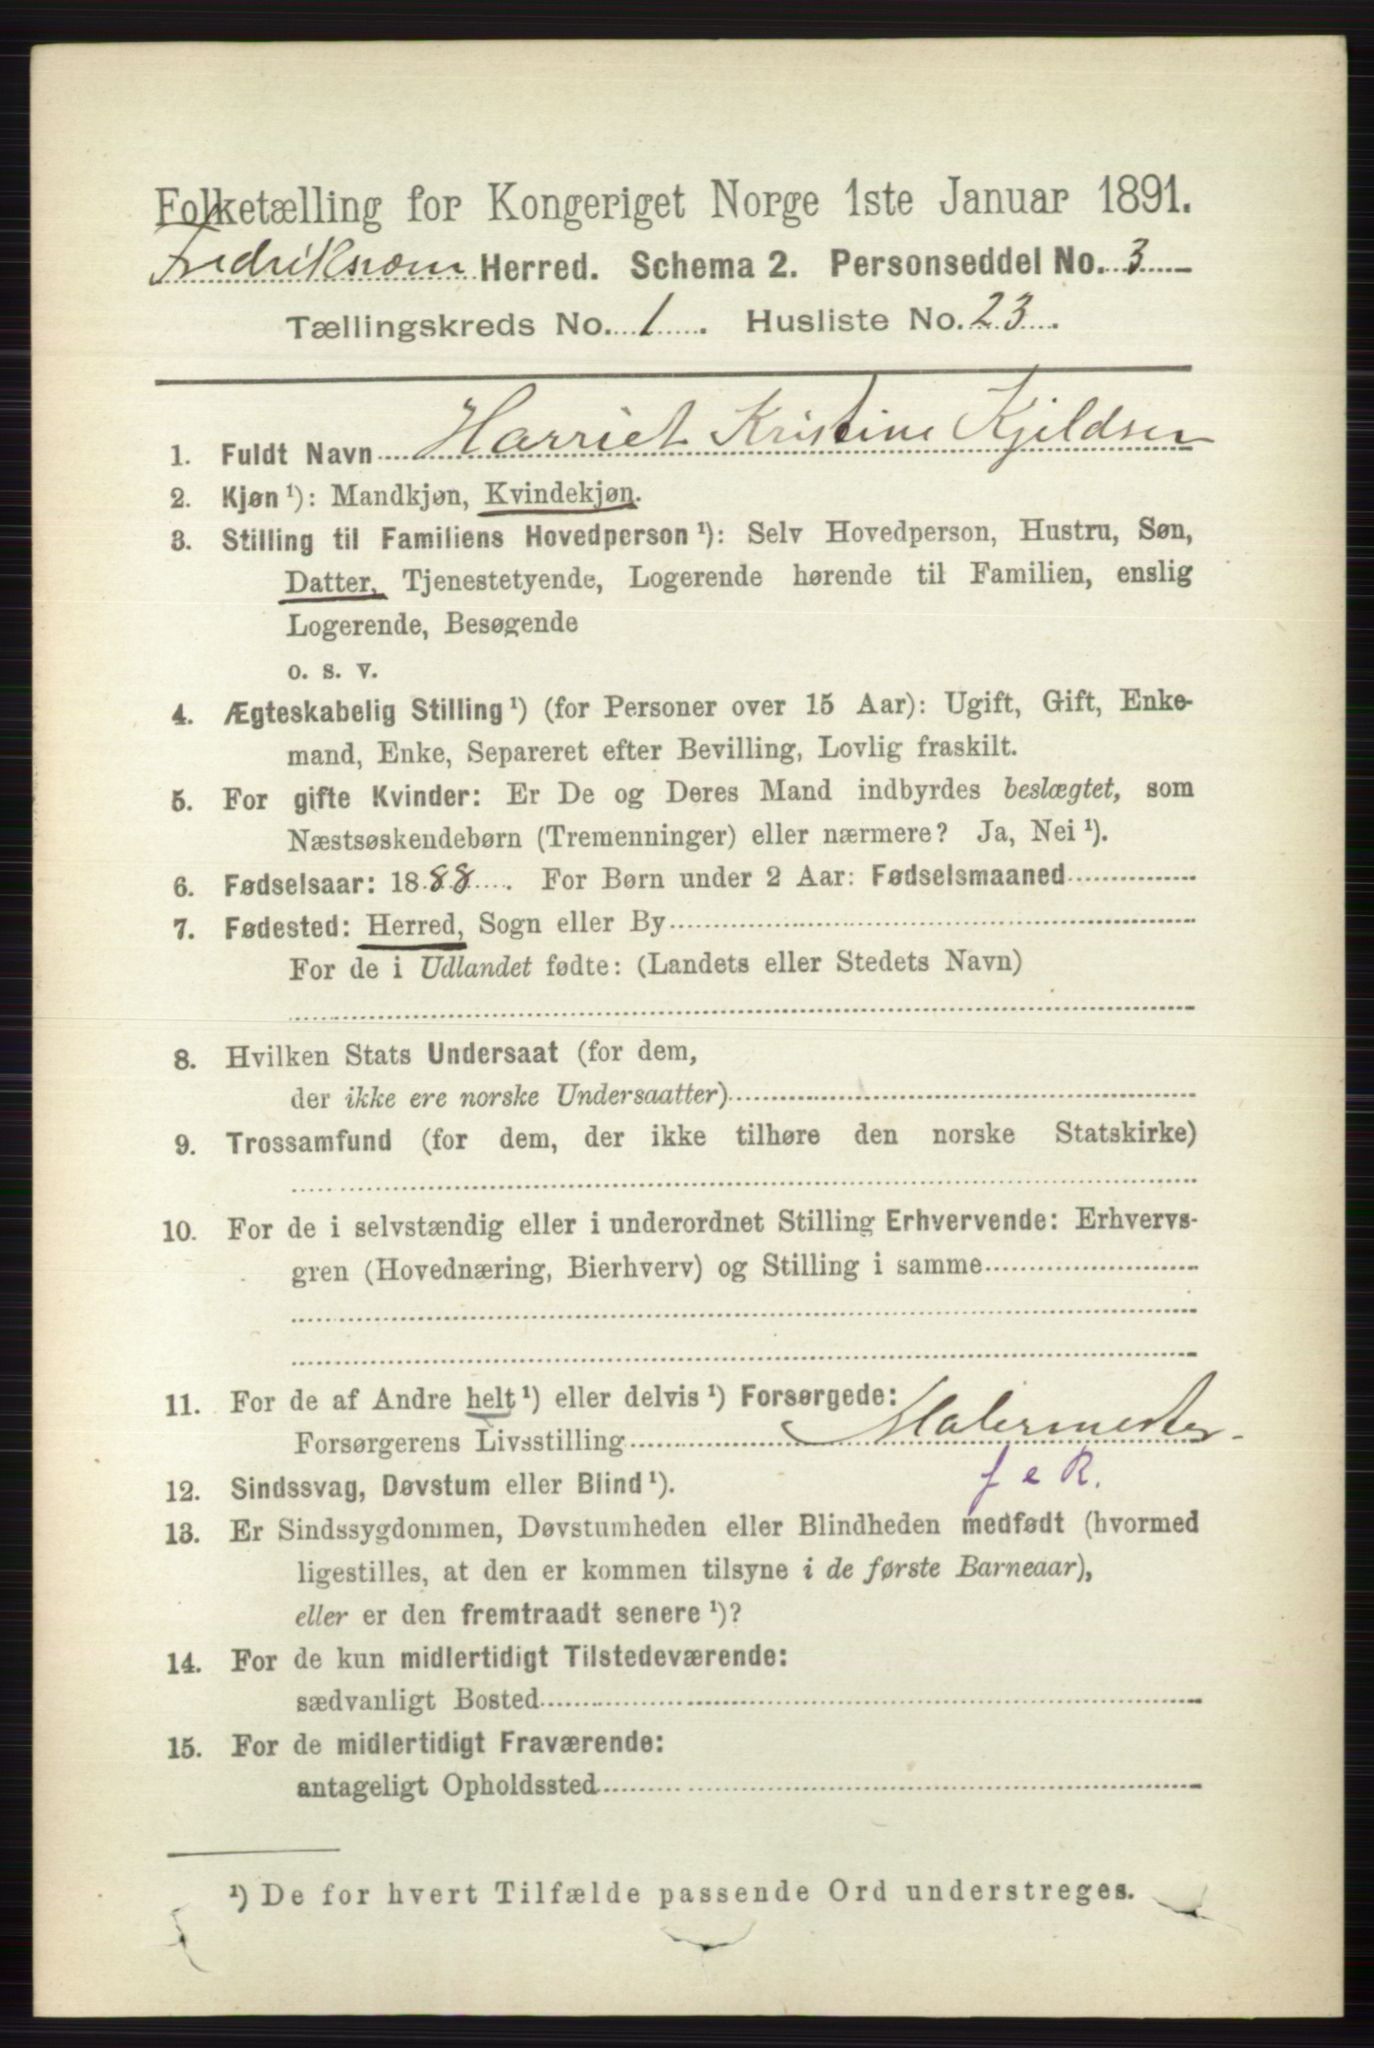 Folketælling for Kongeriget Norge 1ste Januar 1891.
Fredriksværn Herred. Schema 2. Personseddel No. 3
Tællingskreds No. 1. Husliste No. 23.
1. Fuldt Navn Harriet Kristine Kjeldsen
2. Kjøn ¹): Mandkjøn, Kvindekjøn.
3. Stilling til Familiens Hovedperson ¹): Selv Hovedperson, Hustru, Søn,
Datter, Tjenestetyende, Logerende hørende til Familien, enslig
Logerende, Besøgende
o. s. v.
4. Ægteskabelig Stilling ¹) (for Personer over 15 Aar): Ugift, Gift, Enke-
mand, Enke, Separeret efter Bevilling, Lovlig fraskilt.
5. For gifte Kvinder: Er De og Deres Mand indbyrdes beslægtet, som
Næstsøskendebørn (Tremenninger) eller nærmere? Ja, Nei ¹).
6. Fødselsaar: 1888. For Børn under 2 Aar: Fødselsmaaned
7. Fødested: Herred, Sogn eller By
For de i Udlandet fødte: (Landets eller Stedets Navn)
8. Hvilken Stats Undersaat (for dem,
der ikke ere norske Undersaatter)
9. Trossamfund (for dem, der ikke tilhøre den norske Statskirke)
10. For de i selvstændig eller i underordnet Stilling Erhvervende: Erhvervs-
gren (Hovednæring, Bierhverv) og Stilling i samme
11. For de af Andre helt ¹) eller delvis ¹) Forsørgede:
Forsørgerens Livsstilling Malermester
f e R.
12. Sindssvag, Døvstum eller Blind ¹).
13. Er Sindssygdommen, Døvstumheden eller Blindheden medfødt (hvormed
ligestilles, at den er kommen tilsyne i de første Barneaar),
eller er den fremtraadt senere ¹)?
14. For de kun midlertidigt Tilstedeværende:
sædvanligt Bosted
15. For de midlertidigt Fraværende:
antageligt Opholdssted
¹) De for hvert Tilfælde passende Ord understreges.